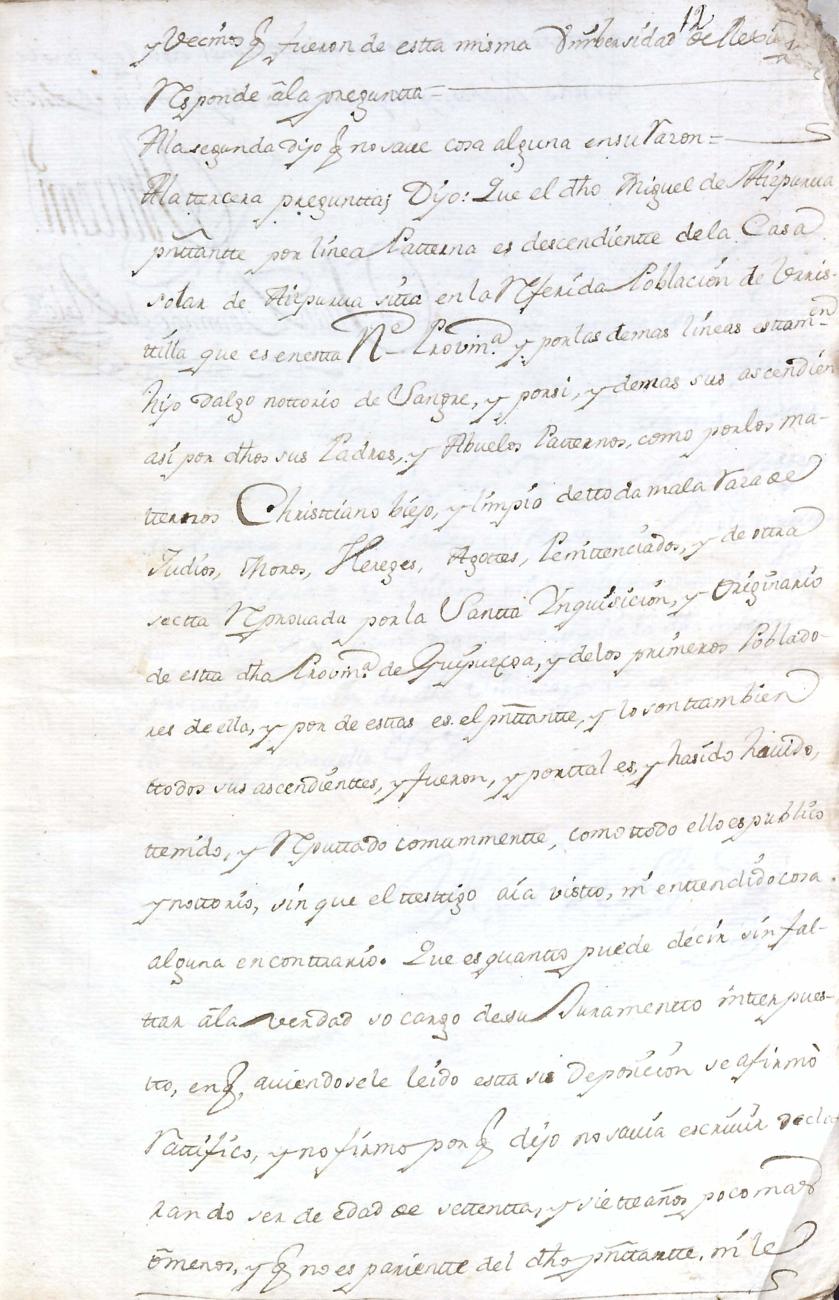 12
y Vecinos q̃ fueron de estta misma Vnibersidad de Lexa
Responde â la preguntta=
A la segunda dijo q̃ no save cosa alguna en su razon=
A la tercera pregunttaj Dijo: Que el dho Miguel de Aizpurua
pnttantte por línea Patterna es descendientte de la Casa
solar de Aizpurua sitta en la Referida Poblacion de Vrris-
ttilla que es en estta N.e Provin.a y por las demas líneas esttam-
hijo Dalgo nottorio de Sangre, y porsi, y demas sus ascendien
asi por dhos sus Padres, y Abuelos Patternos, como por los ma-
tternos Christtiano biejo, y limpio de ttoda mala raza de
Judios, Moros, Hereges, Agottes, Penittenciados, y de ottra
sectta Reprovada por la Santta Ynquisicion, y Originario
de estta dha Provin.a de Guipuzcoa, y de los primeros Poblado-
res de ella, y por de esttas es el pnttantte, y lo son ttambien
ttodos sus ascendienttes, y fueron, y por ttal es, y ha sido havido,
ttenido, y Reputtado comunmentte, como ttodo ello es publico
y nottorio, sin que el ttesttigo aia vistto, ni enttendido cosa
alguna en conttrario. Que es quantto puede decir sin fal-
ttar â la verdad so cargo de su Juramentto interpues-
tto, en q̃, aviendosele leido estta su Deposicion se afirmò
Rattifico, y no firmo por q̃ dijo no savia escrivir decla
rando ser de edad de settentta, y sietteaños poco mas
ô menos, y q̃ no es parientte del dho pnttantte, ni le